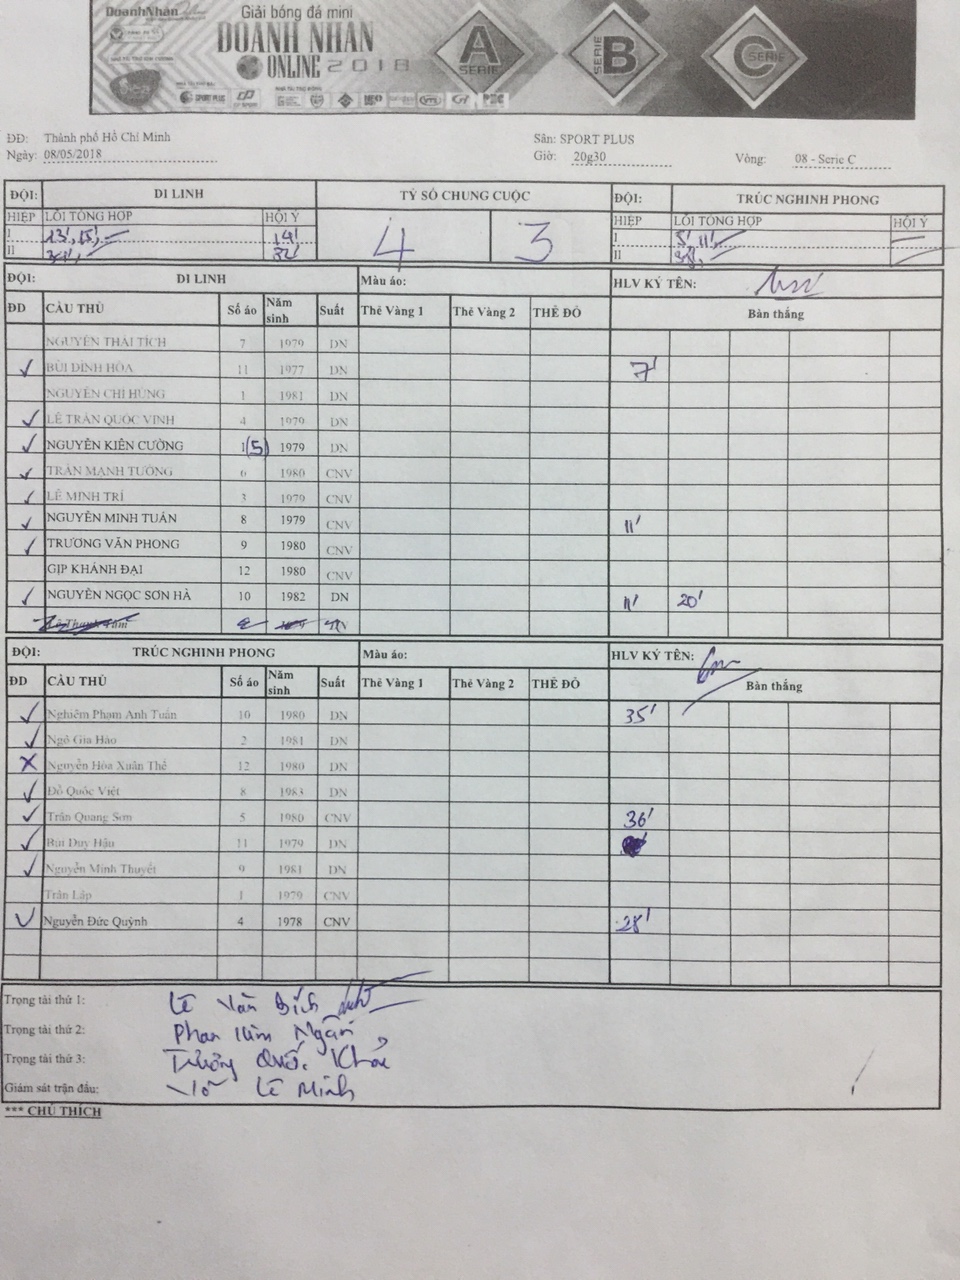 DoanhNhân
Giải bóng đá mini
DOANH NHÂN
ONLINE 2018
A SERIE
SERIE B
C SERIE
SPORT PLUS
ĐĐ: Thành phố Hồ Chí Minh Sân: SPORT PLUS
Ngày: 08/05/2018 Giờ: 20g30 Vòng: 08 - Serie C
ĐỘI: DI LINH TỶ SỐ CHUNG CUỘC ĐỘI: TRÚC NGHINH PHONG
HIỆP LỖI TỔNG HỢP HỘI Ý 4 3 HIỆP LỖI TỔNG HỢP HỘI Ý
I 13', 15', 19' I 5', 11',
II 32' II 38',
ĐỘI: DI LINH Màu áo: HLV KÝ TÊN:
ĐD CẦU THỦ Số áo Năm sinh Suất Thẻ Vàng 1 Thẻ Vàng 2 THẺ ĐỎ Bàn thắng
NGUYỄN THÁI TÍCH 7 1979 DN
✓ BÙI ĐÌNH HÒA 11 1977 DN 7'
NGUYỄN CHÍ HÙNG 1 1981 DN
✓ LÊ TRẦN QUỐC VINH 4 1979 DN
✓ NGUYỄN KIÊN CƯỜNG 1(5) 1979 DN
✓ TRẦN MẠNH TƯỜNG 6 1980 CNV
✓ LÊ MINH TRÍ 3 1979 CNV
✓ NGUYỄN MINH TUẤN 8 1979 CNV 11'
✓ TRƯƠNG VĂN PHONG 9 1980 CNV
GỊP KHÁNH ĐẠI 12 1980 CNV
✓ NGUYỄN NGỌC SƠN HÀ 10 1982 DN 11' 20'
ĐỘI: TRÚC NGHINH PHONG Màu áo: HLV KÝ TÊN:
ĐD CẦU THỦ Số áo Năm sinh Suất Thẻ Vàng 1 Thẻ Vàng 2 THẺ ĐỎ Bàn thắng
✓ Nghiêm Phạm Anh Tuấn 10 1980 DN 35'
✓ Ngô Gia Hào 2 1981 DN
X Nguyễn Hòa Xuân Thế 12 1980 DN
✓ Đỗ Quốc Việt 8 1983 DN
✓ Trần Quang Sơn 5 1980 CNV 36'
✓ Bùi Duy Hậu 11 1979 DN
✓ Nguyễn Minh Thuyết 9 1981 DN
Trần Lập 1 1979 CNV
✓ Nguyễn Đức Quỳnh 4 1978 CNV 28'
Trọng tài thứ 1: Lê Văn Bích
Trọng tài thứ 2: Phan Kim Ngân
Trọng tài thứ 3: Trương Quốc
Giám sát trận đấu: Võ Lê Minh
*** CHÚ THÍCH